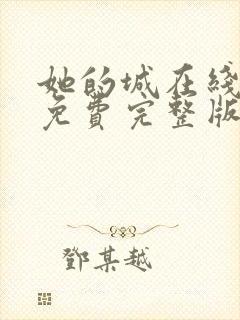 她的城在綫
免費完整版
鄧某越